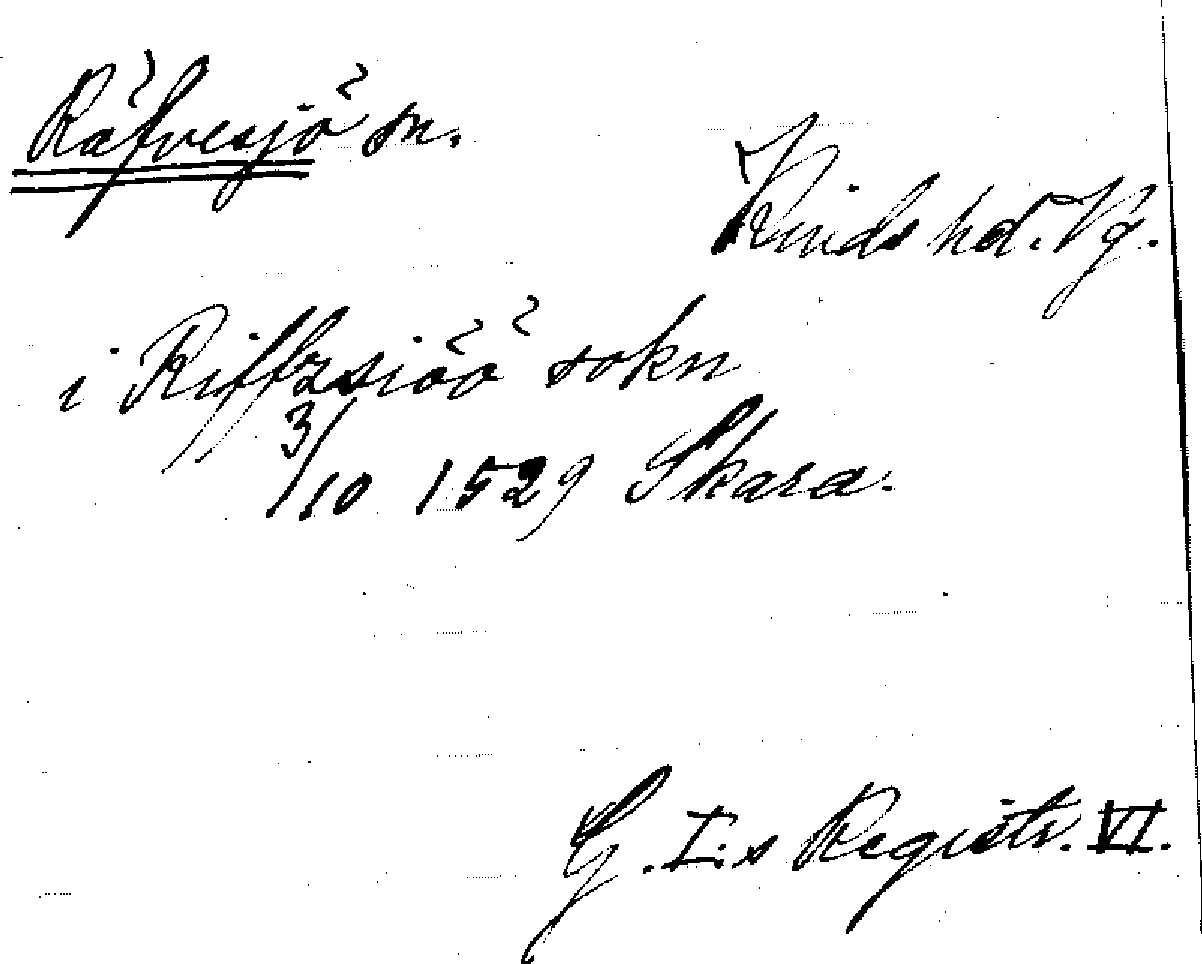 Räfvesjö sn.
Kinds hd. Vg.
i Riffzsiöö sokn
3/10 1529 Skara.
G. I:s Registr. VI.